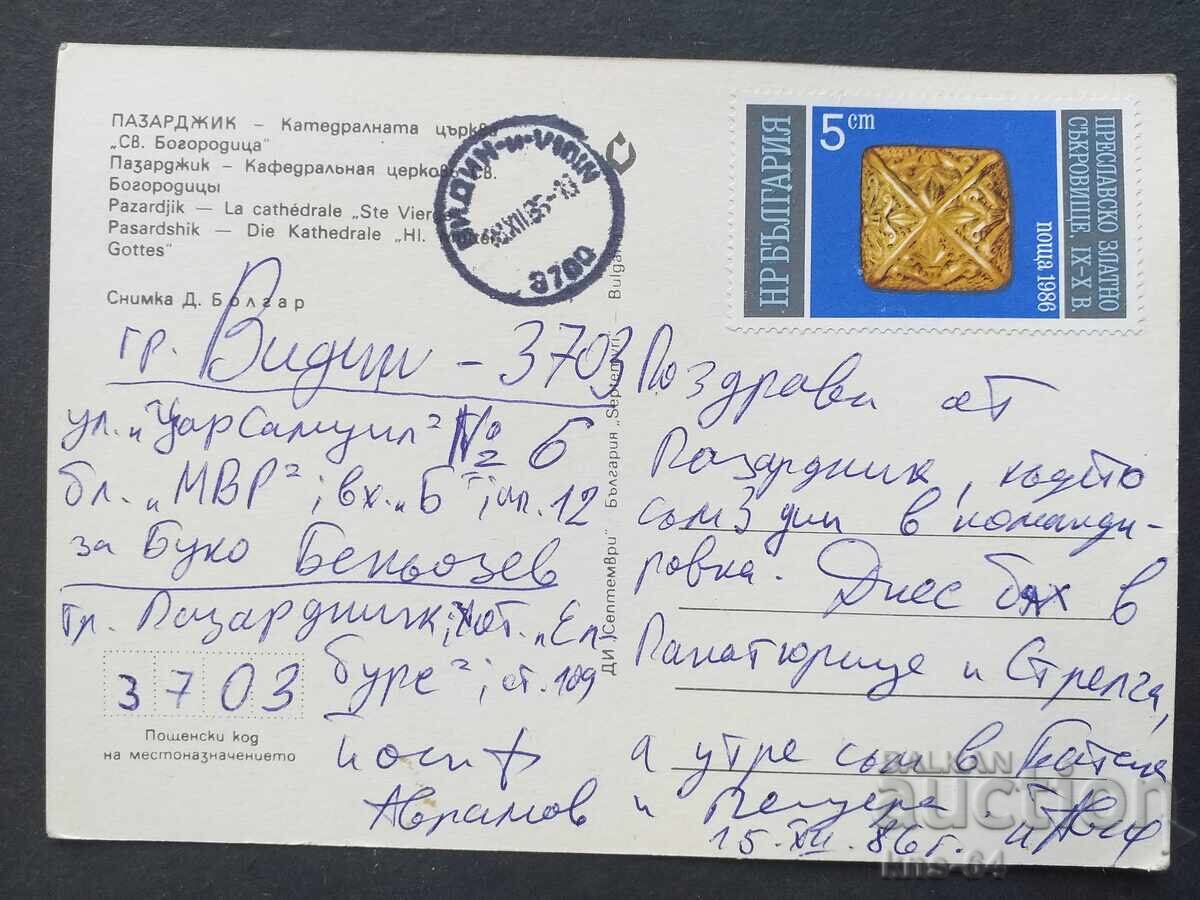 ПАЗАРДЖИК – Катедралната църква
„Св. Богородица"
Пазарджик – Кафедральная церковь Св.
Богородицы
Pazardjik — La cathédrale „Ste Vierge
Pasardshik — Die Kathedrale „Hl. Mutter
Gottes"
Снимка Д. Болгар
ВИДИН-и-VIDIN
3700
5 ст
НР БЪЛГАРИЯ
ПРЕСЛАВСКО ЗЛАТНО
СЪКРОВИЩЕ. IX-X В.
поща 1986
ДИ „Септември" България „Septemvri" Bulgari
гр. Видин – 3703
ул. „Цар Самуил" № 6
бл. „МВР"; вх. „Б"; ап. 12
за Буко Беньозев
гр. Пазарджик; хот. „Ел-
буре"; ст. 109
Йосиф
Аврамов
3703
Пощенски код
на местоназначението
Поздрави от
Пазарджик, където
съм 3 дни в команди-
ровка. Днес бях в
Панагюрище и Стрелча,
а утре съм в Батак
и Пещера.
15.XII.86 г.
BALKAN
auction
kns-64